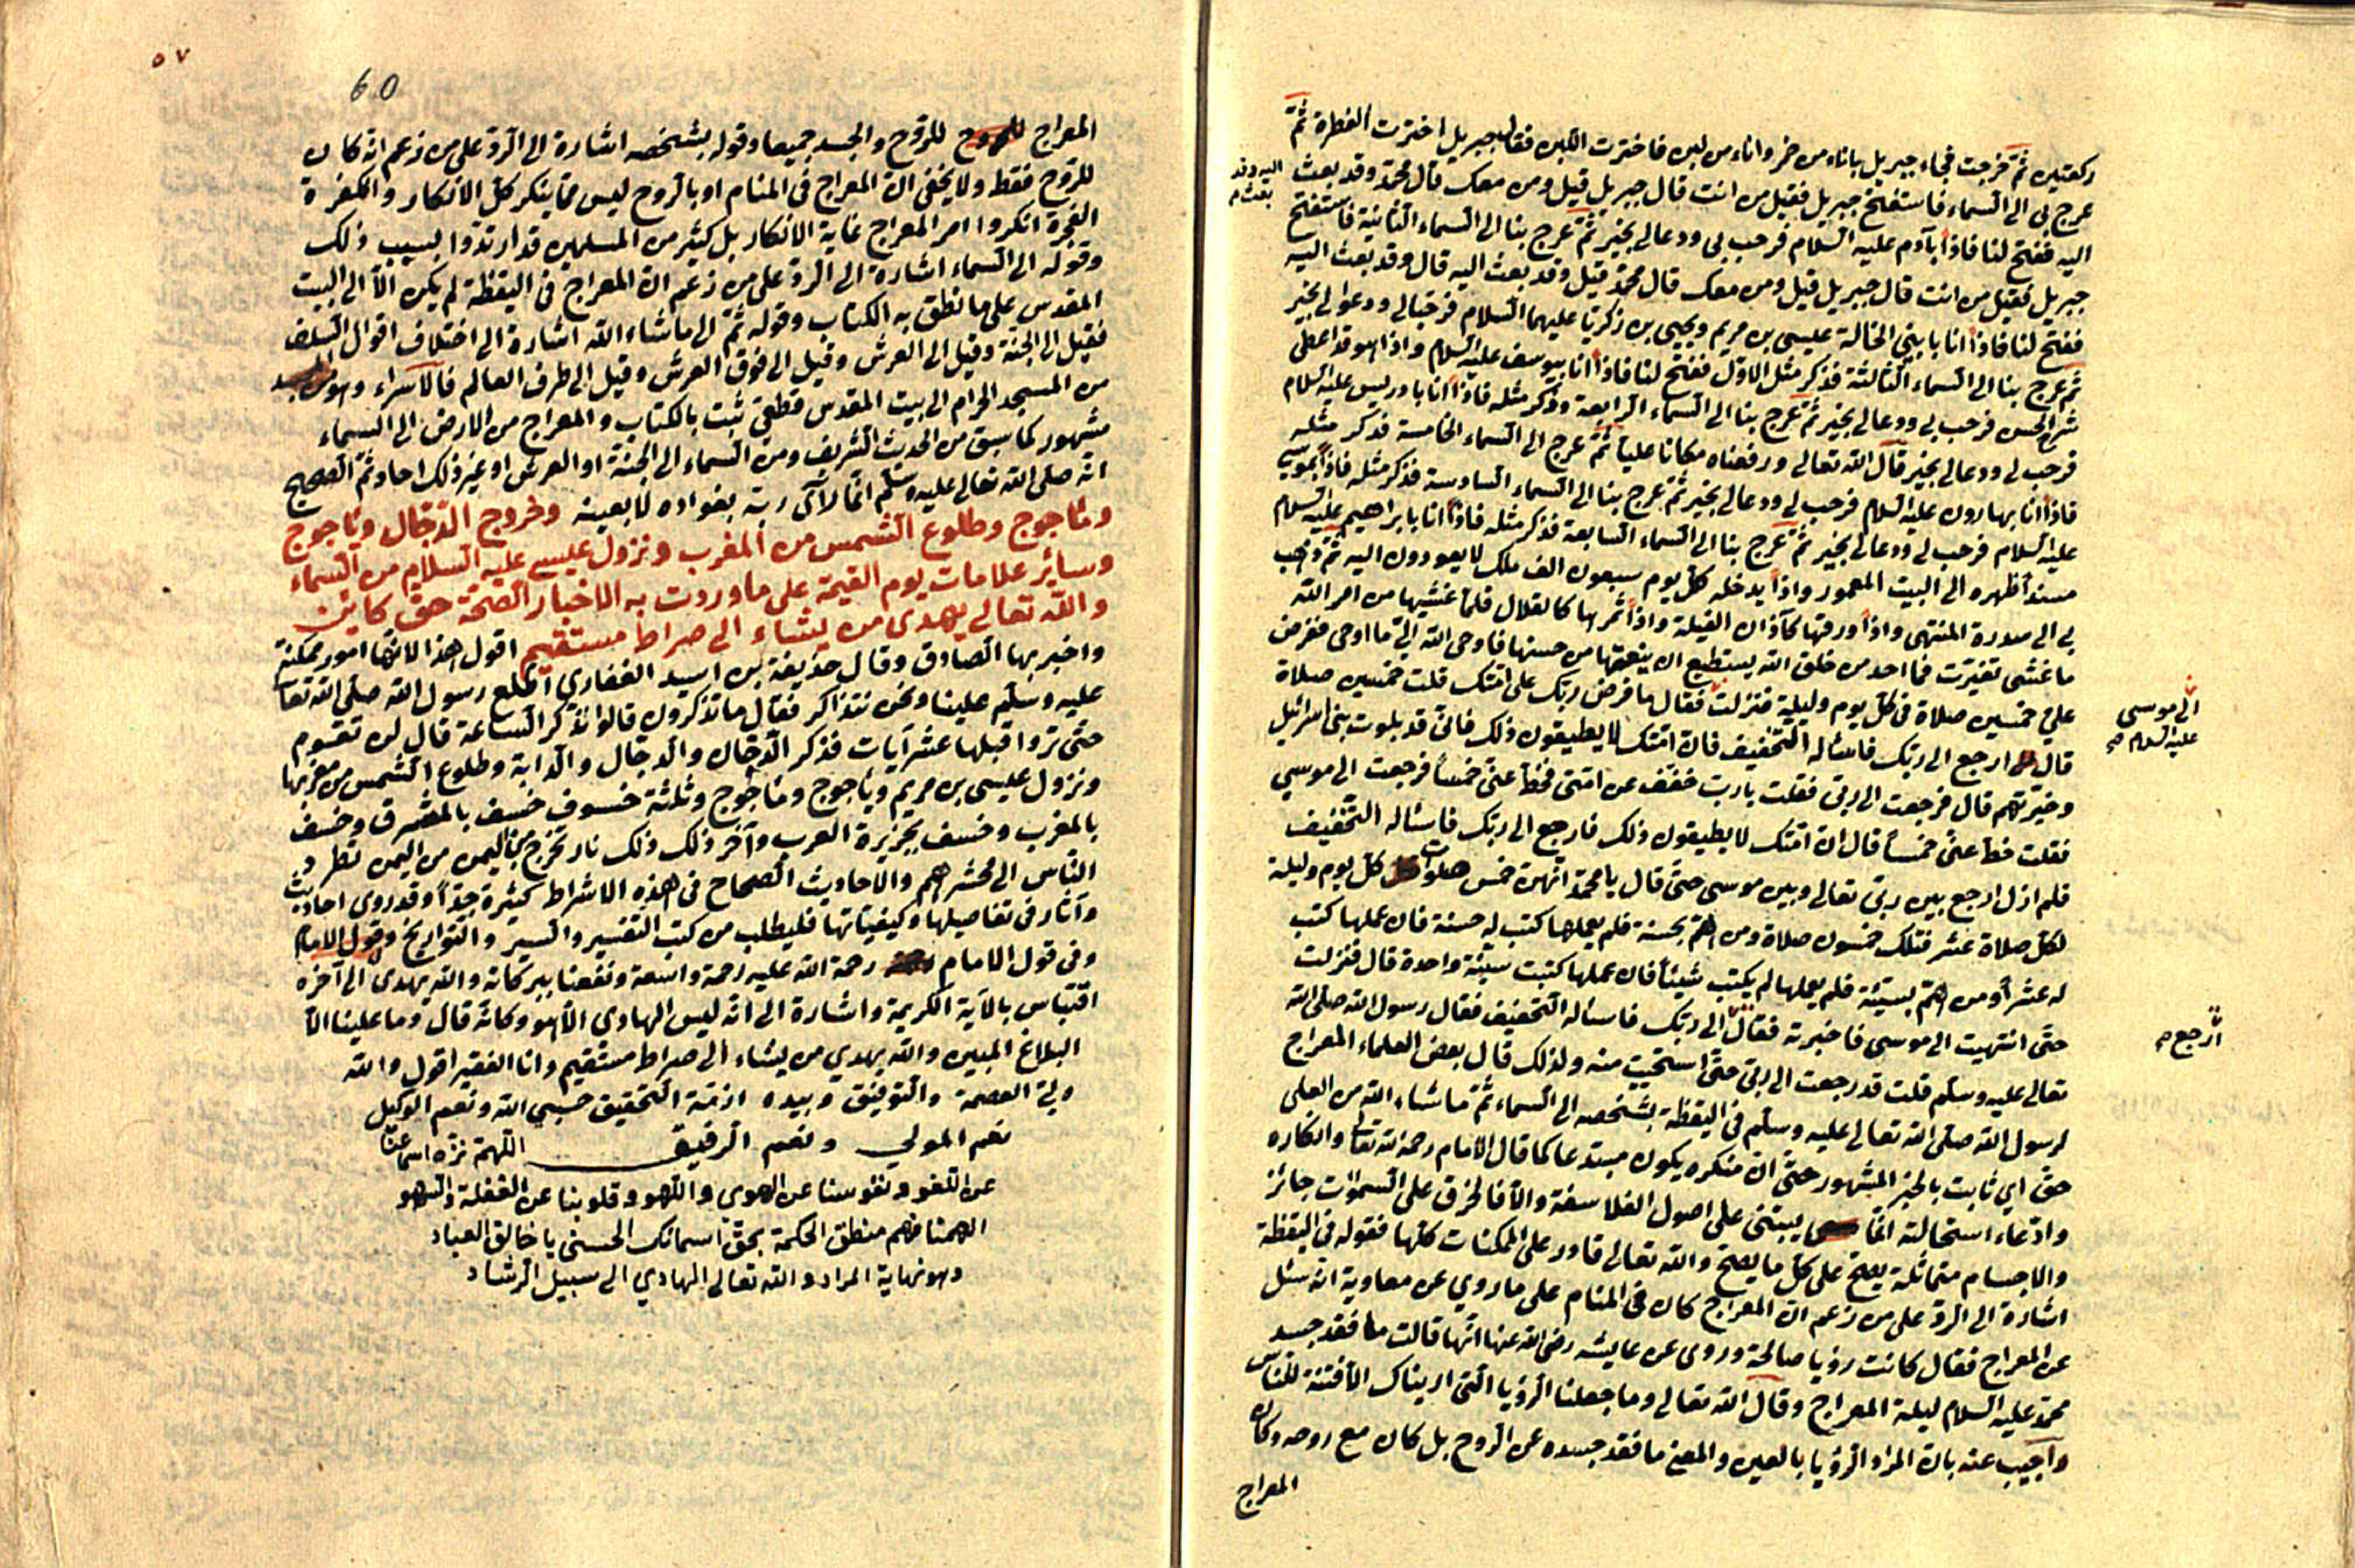 ركعتين ثم خرجت فجاء جبريل باناء من خمر واناء من لبن فاخترت اللبن فقال جبريل اخترت الفطرة ثم
عرج بى الى السماء فاستفتح جبريل فقيل من انت قال جبريل قيل ومن معك قال محمد وقد بعث
اليه وقد
بعث
اليه ففتح لنا فاذا بآدم عليه السلام فرحب بى ودعالى بخير ثم عرج بنا الى السماء الثانية فاستفتح
جبريل فقيل من انت قال جبريل قيل ومن معك قال محمد قيل وقد بعث اليه قال وقد بعث اليه
ففتح لنا فاذا انا بابنى الخالة عيسى بن مريم ويحيى بن زكريا عليهما السلام فرحبالى ودعوالى بخير
ثم عرج بنا الى السماء الثالثة فذكر مثل الاول ففتح لنا فاذا انا بيوسف عليه السلام واذا هو قد اعطى
الحسن فرحب بى ودعالى بخير ثم عرج بنا الى السماء الرابعة وذكر مثله فاذا انا بادريس عليه السلام
فرحب لى ودعالى بخير قال الله تعالى ورفعناه مكانا عليا ثم عرج الى السماء الخامسة فذكر مثله
فاذا انا بهارون عليه السلام فرحب لى ودعالى بخير ثم عرج بنا الى السماء السادسة فذكر مثله فاذا بموسى
عليه السلام فرحب لى ودعالى بخير ثم عرج بنا الى السماء السابعة فذكر مثله فاذا انا بابراهيم عليه السلام
مسندا ظهره الى البيت المعمور واذا يدخله كل يوم سبعون الف ملك لا يعودون اليه ثم ذهب
بى الى سدرة المنتهى واذا ورقها كآذان الفيلة واذا ثمرها كالقلال فلما غشيها من امر الله
ما غشى تغيرت فما احد من خلق الله يستطيع ان ينعتها من حسنها فاوحى الله الى ما اوحى ففرض
على خمسين صلاة فى كل يوم وليلة فنزلت فقال ما فرض ربك على امتك قلت خمسين صلاة
الى موسى
عليه السلام
قال ارجع الى ربك فاسئاله التخفيف فان امتك لا يطيقون ذلك فانى قد بلوت بنى اسرائيل
وخبرتهم قال فرجعت الى ربى فقلت يا رب خفف عن امتى فحط عنى خمسا فرجعت الى موسى
فقلت حط عنى خمسا قال ان امتك لا يطيقون ذلك فارجع الى ربك فاسئاله التخفيف
فلم ازل ارجع بين ربى تعالى وبين موسى حتى قال يا محمد انهن خمس صلوات كل يوم وليلة
لكل صلاة عشر فتلك خمسون صلاة ومن اهتم بحسنة فلم يعملها كتب له حسنة فان عملها كتب
له عشر أو من اهتم بسيئة فلم يعملها لم يكتب شيئا فان عملها كتبت سيئة واحدة قال فنزلت
حتى انتهيت الى موسى فاخبرته فقال الى ربك فاسئاله التخفيف فقال رسول الله صلى الله
ارجع
تعالى عليه وسلم قلت قد رجعت الى ربى حتى استحيت منه ولذلك قال بعض العلماء المعراج
لرسول الله صلى الله تعالى عليه وسلم فى اليقظة بشخصه الى السماء ثم ما شاء الله من العلى
حق اي ثابت بالخبر المشهور حتى ان منكره يكون مبتدعا كما قال الامام رحمه الله تعا وانكاره
وادعاء استحالته انما يبتنى على اصول الفلاسفة والا فالخرق على السموات جائز
والاجسام متماثلة يصح على كل ما يصح والله تعالى قادر على الممكنات كلها فقوله فى اليقظة
اشارة الى الرد على من زعم ان المعراج كان فى المنام على ما روي عن معاوية انه سئل
عن المعراج فقال كانت رؤيا صالحة وروى عن عايشه رضى الله عنها انها قالت ما فقد جسد
محمد عليه السلام ليلة المعراج وقال الله تعالى وما جعلنا الرؤيا التى اريناك الا فتنة للناس
واجيب عنه بان المراد الرؤيا بالعين والمعنى ما فقد جسده عن الروح بل كان مع روحه وكان
المعراج
٥٧
60
المعراج للروح والجسد جميعا وقوله بشخصه اشارة الى الرد على من زعم انه كان
للروح فقط ولا يخفى ان المعراج فى المنام او بالروح ليس مما ينكر كل الانكار والكفرة
الفجرة انكروا امر المعراج غاية الانكار بل كثير من المسلمين قد ارتدوا بسبب ذلك
وقوله الى السماء اشارة الى الرد على من زعم ان المعراج فى اليقظة لم يكن الا الى البيت
المقدس على ما نطق به الكتاب وقوله ثم الى ما شاء الله اشارة الى اختلاف اقوال السلف
فقيل الى الجنة وقيل الى العرش وقيل الى فوق العرش وقيل الى طرف العالم فالاسراء وهو
من المسجد الحرام الى بيت المقدس قطعى ثبت بالكتاب والمعراج من الارض الى السماء
مشهور كما سبق من الحديث الشريف ومن السماء الى الجنة او العرش او غير ذلك احاد ثم الصحيح
انه صلى الله تعالى عليه وسلم انما رأى ربه بفواده لا بعينه وخروج الدجال ويأجوج
ومأجوج وطلوع الشمس من المغرب ونزول عيسى عليه السلام من السماء
وسائر علامات يوم القيمة على ما وردت به الاخبار الصحة حق كائن
والله تعالى يهدى من يشاء الى صراط مستقيم اقول هذا لانها امور ممكنة
واخبر بها الصادق وقال حذيفة بن اسيد الغفاري اطلع رسول الله صلى الله تعا
عليه وسلم علينا ونحن نتذاكر فقال ما تذكرون قالوا نذكر الساعة قال لن تقوم
حتى تروا قبلها عشر آيات فذكر الدخان والدجال والدابة وطلوع الشمس من مغربها
ونزول عيسى بن مريم ويأجوج ومأجوج وثلثة خسوف خسف بالمشرق وخسف
بالمغرب وخسف بجزيرة العرب وآخر ذلك ذلك نار تخرج من اليمن من اليمن تطرد
الناس الى محشرهم والاحاديث الصحاح فى هذه الاشراط كثيرة جدا وقد روى احاديث
وآثار فى تفاصيلها وكيفياتها فليطلب من كتب التفسير والسير والتواريخ وقول الامام
وفى قول الامام رحمة الله عليه رحمة واسعة ونفعنا ببركاته والله يهدى الى آخره
اقتباس بالآية الكريمة واشارة الى انه ليس الهادى الا هو وكانه قال وما علينا الا
البلاغ المبين والله يهدي من يشاء الى صراط مستقيم وانا الفقير اقول والله
ولى العصمة والتوفيق وبيده ازمة التحقيق حسبى الله ونعم الوكيل
نعم المولى ونعم الرفيق اللهم نزه اسماعنا
عن اللغو ونفوسنا عن الهوى واللهو وقلوبنا عن الغفلة والسهو
الهمنا فهم منطق الحكمة بحق اسمائك الحسنى يا خالق العباد
وهو نهاية المراد والله تعالى الهادي الى سبيل الرشاد